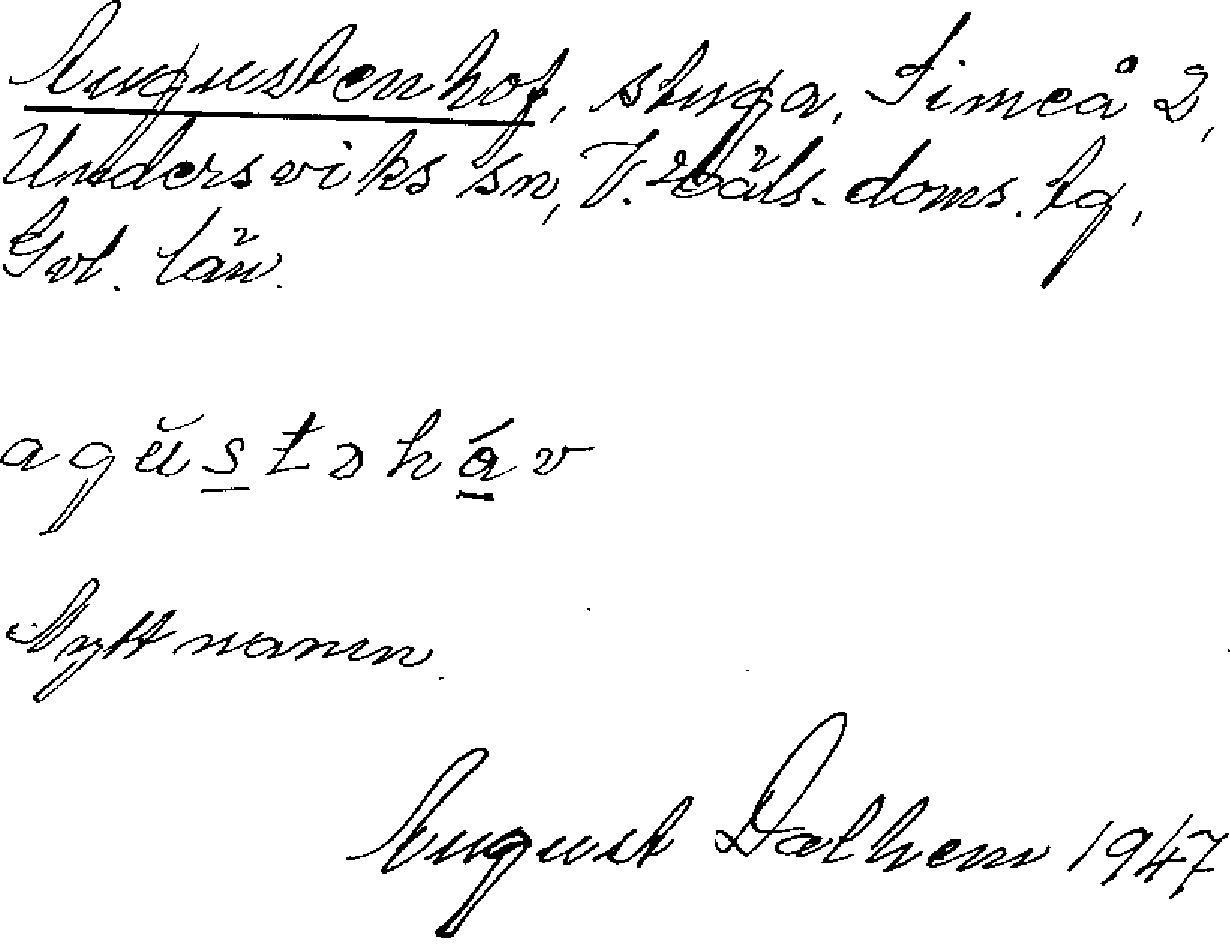 Augustenhof, stuga, Simeå 2,
Undersviks sn, V. Häls. doms. lg,
Gvl. län.
agŭstəháv
Nytt namn.
August Dalhem 1947